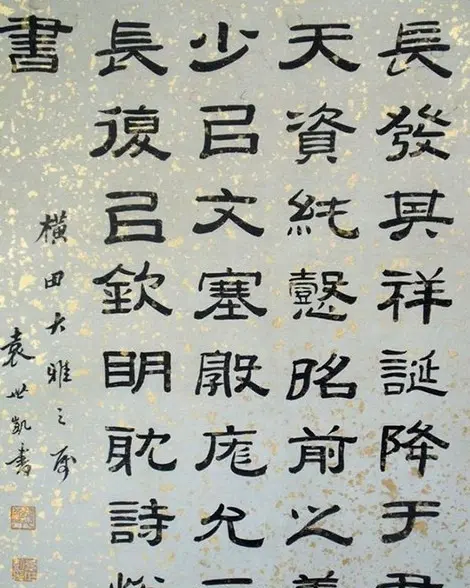 長發其祥誕降于君
天資純懿昭前之美
少㠯文塞敦庬允
長復㠯欽明耽詩
書
橫田大雅之屬
袁世凱書